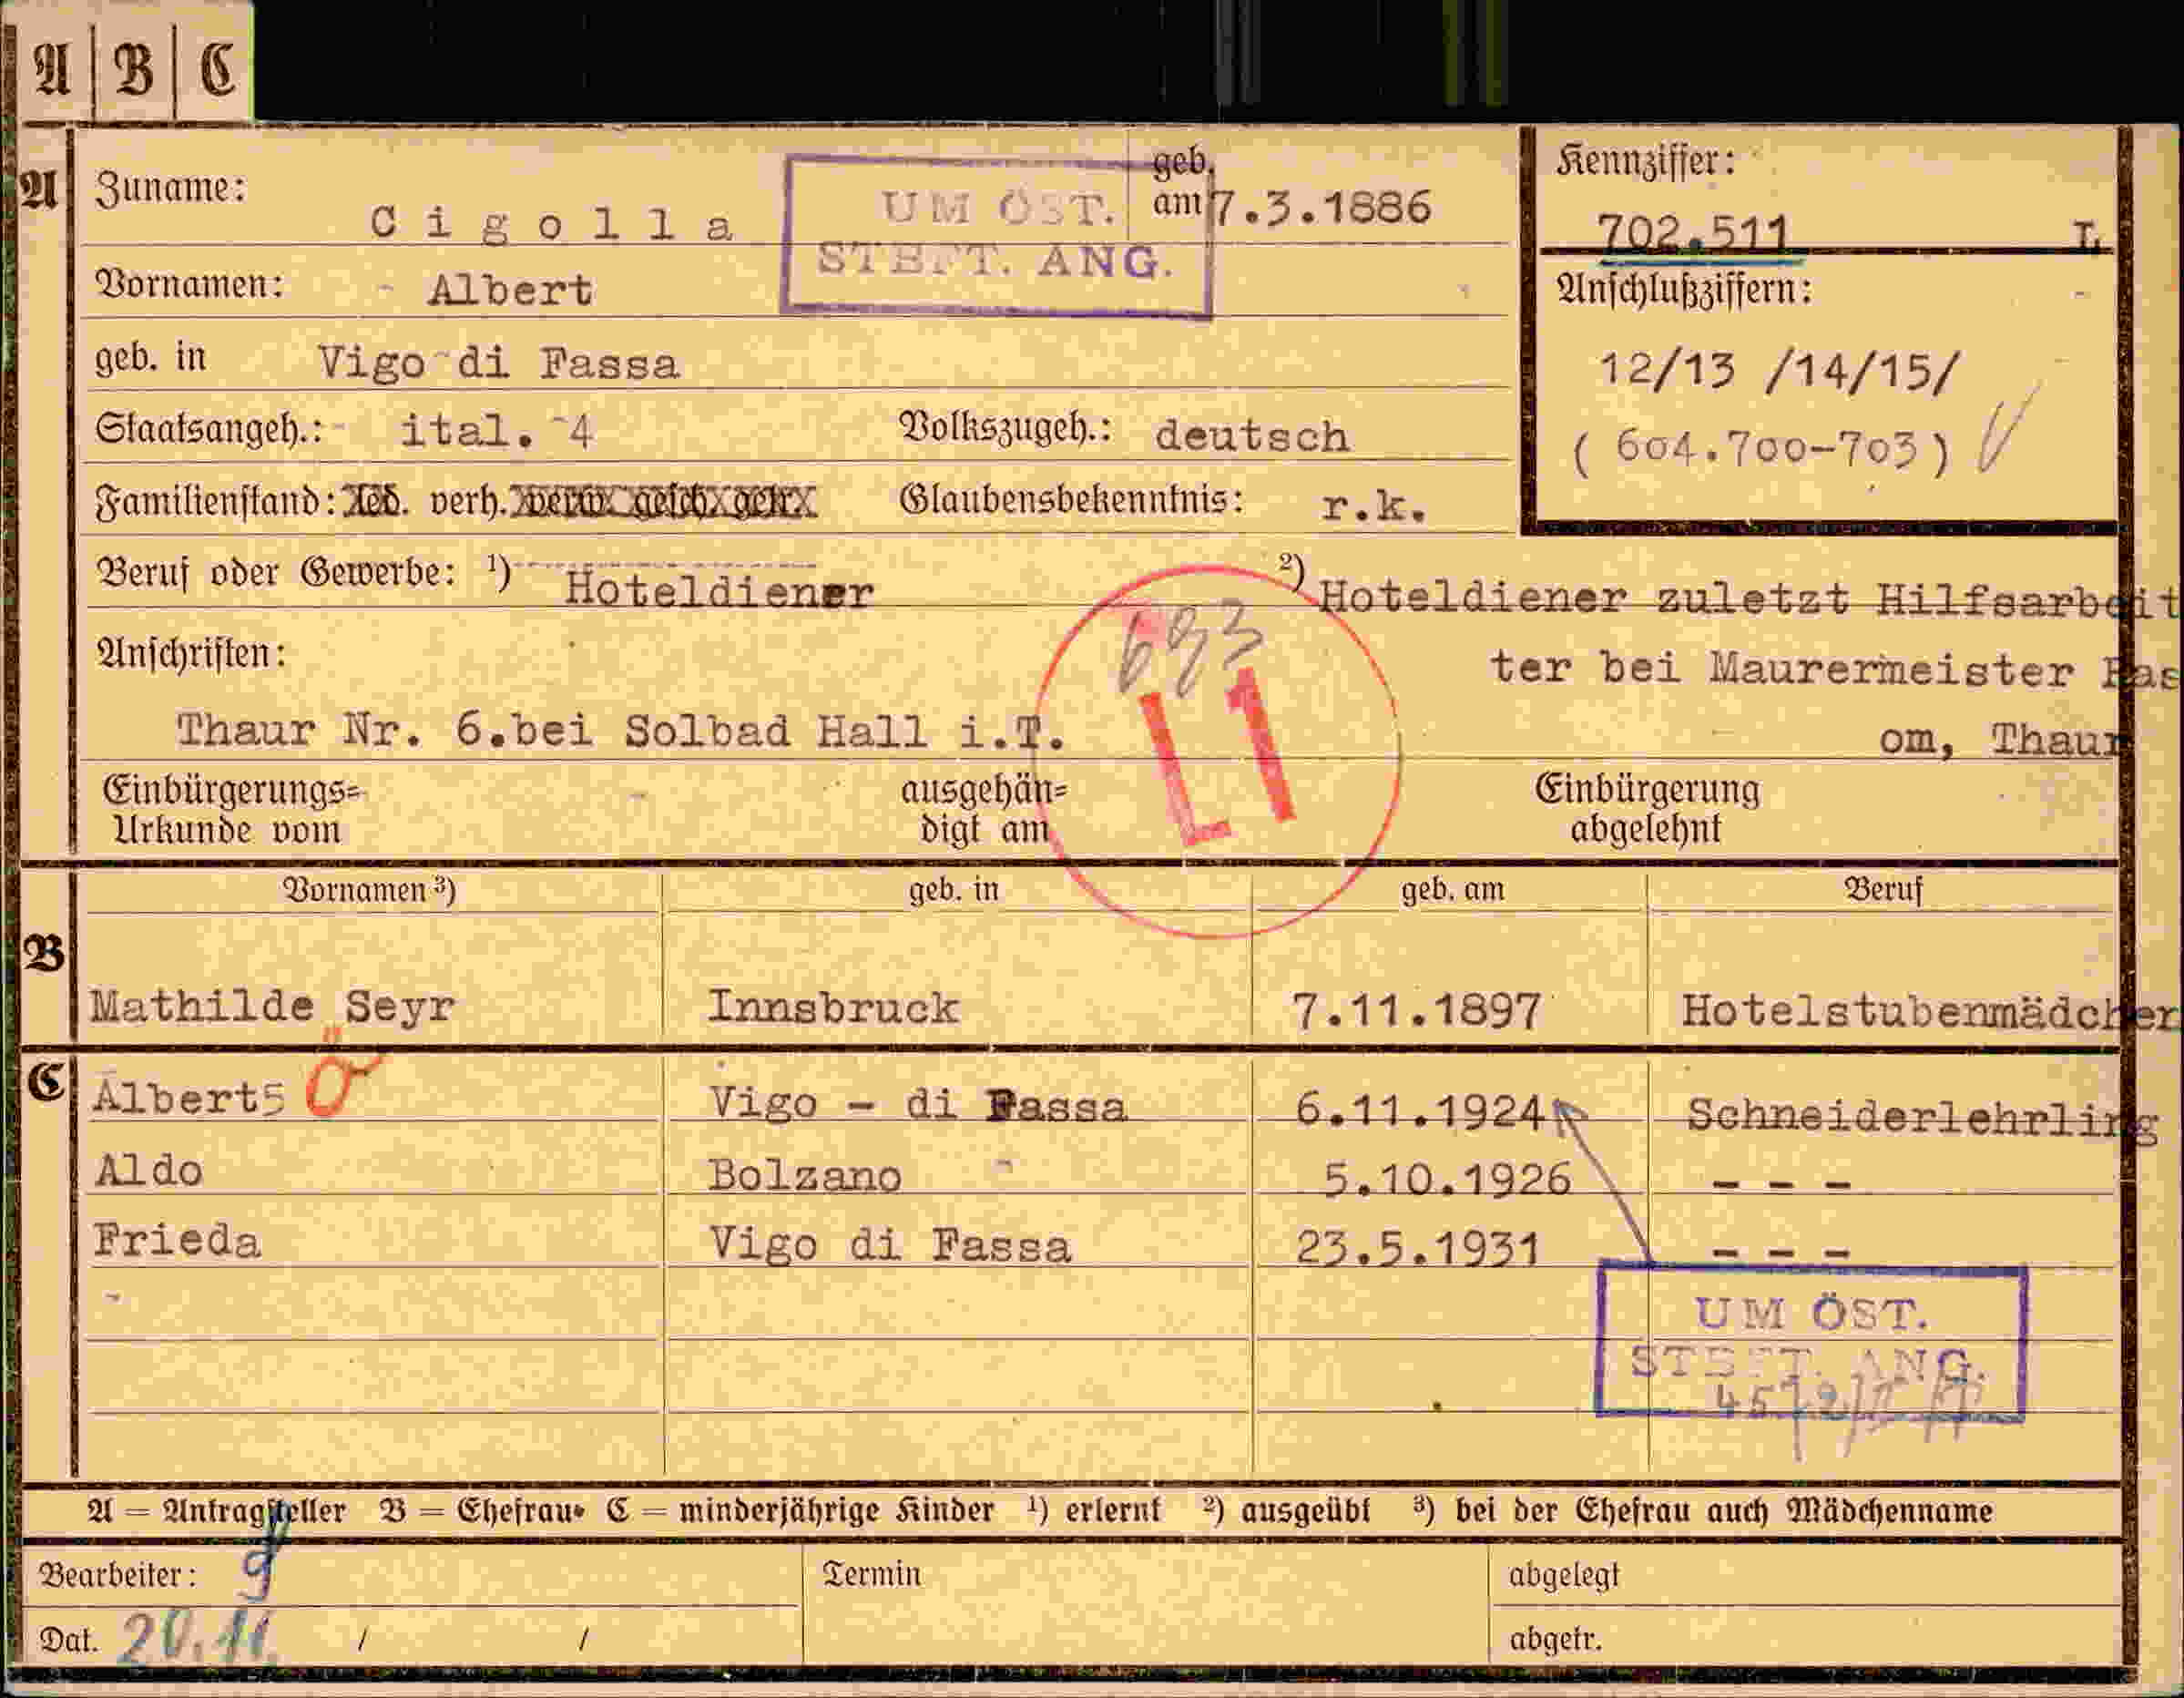 A | B | C
A
Zuname: Cigolla
geb. am 7.3.1886
UM ÖST.
STBFT. ANG.
Kennziffer:
702.511 L
Vornamen: Albert
Anschlußziffern:
geb. in Vigo di Fassa
12/13 /14/15/
Staatsangeh.: ital. 4 Volkszugeh.: deutsch
( 604.700-703 )
Familienstand: led. verh. verw. gesch. getr. Glaubensbekenntnis: r.k.
Beruf oder Gewerbe: ¹) Hoteldiener ²) Hoteldiener zuletzt Hilfsarbeit
ter bei Maurermeister Pas
om, Thaur
693
L1
Anschriften:
Thaur Nr. 6.bei Solbad Hall i.T.
Einbürgerungs= ausgehän= Einbürgerung
Urkunde vom digt am abgelehnt
Vornamen ³) geb. in geb. am Beruf
B
Mathilde Seyr Innsbruck 7.11.1897 Hotelstubenmädchen
C
Albert5 Ö Vigo - di Fassa 6.11.1924 Schneiderlehrling
Aldo Bolzano 5.10.1926 - - -
Frieda Vigo di Fassa 23.5.1931 - - -
UM ÖST.
STBFT. ANG.
A = Antragsteller B = Ehefrau C = minderjährige Kinder ¹) erlernt ²) ausgeübt ³) bei der Ehefrau auch Mädchenname
Bearbeiter: Termin abgelegt
Dat. 20.11. / / abgetr.